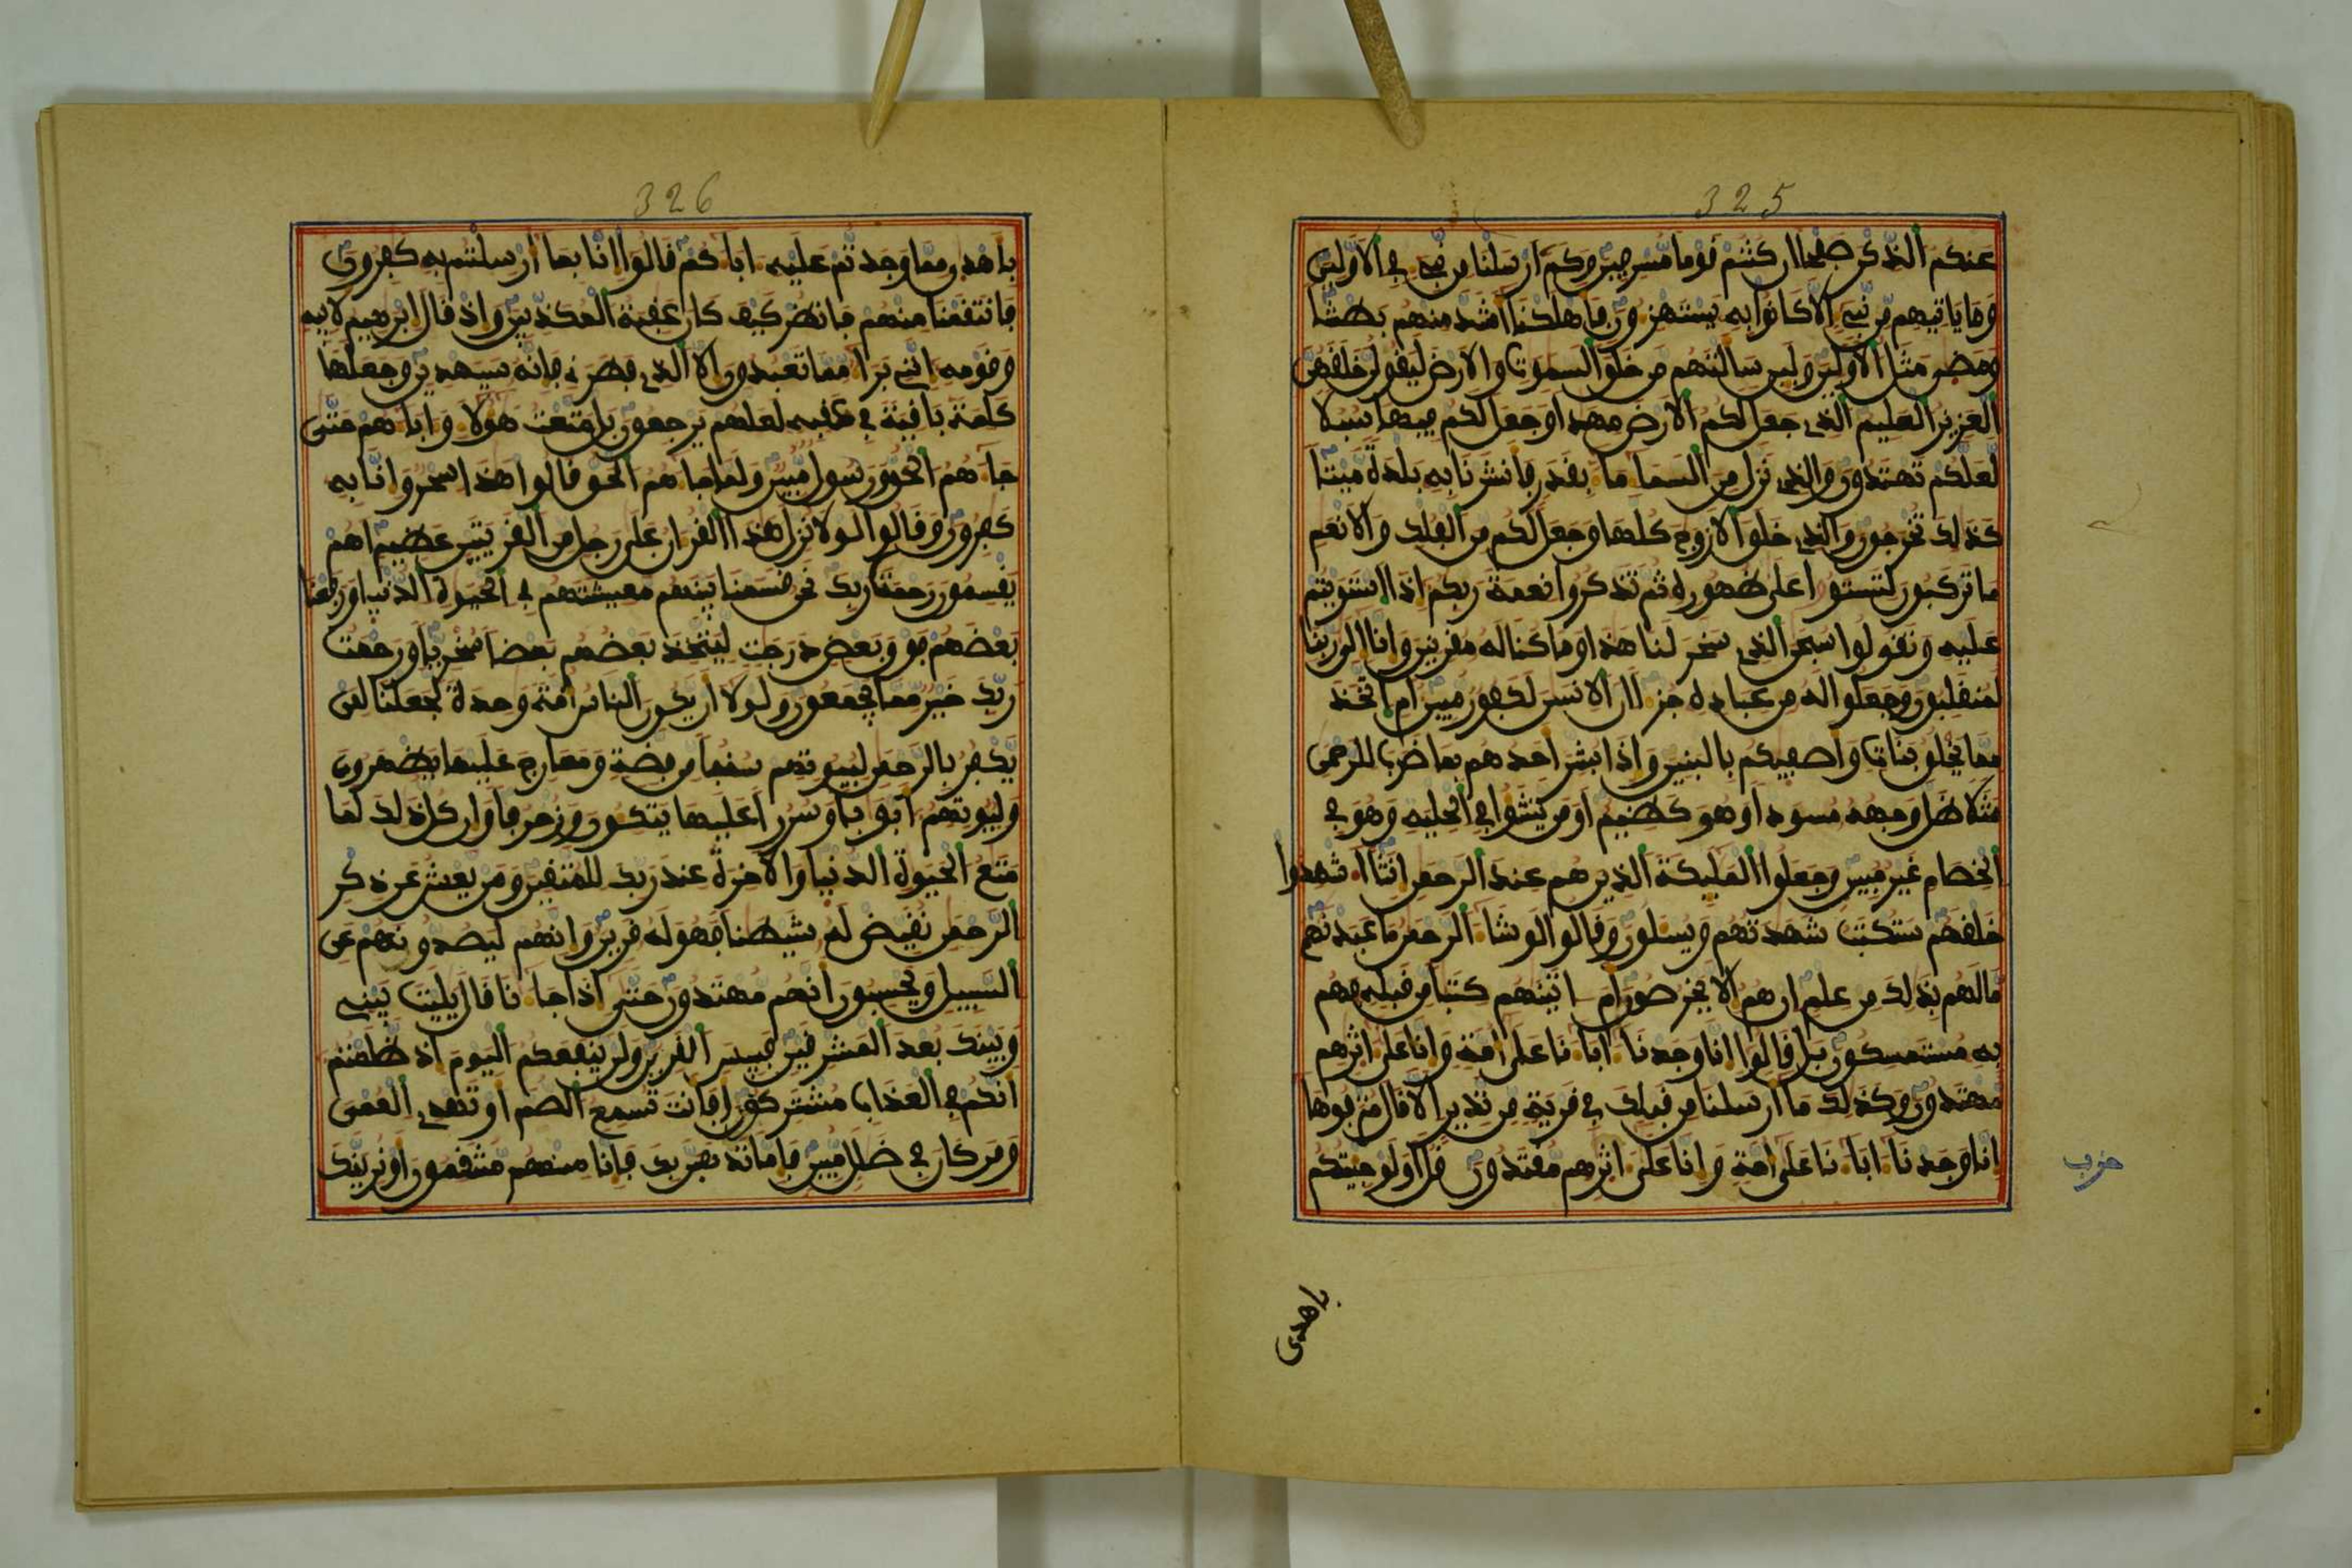 325
عنكم الذكر صفحا ان كنتم قوما مسرفين وكم ارسلنا من نبيء في الاولين
وما ياتيهم من نبيء الا كانوا به يستهزءون فاهلكنا اشد منهم بطشا
ومضى مثل الاولين ولين سالتهم من خلق السموت والارض ليقولن خلقهن
العزيز العليم الذي جعل لكم الارض مهدا وجعل لكم فيها سبلا
لعلكم تهتدون والذي نزل من السماء ماء بقدر فانشرنا به بلدة ميتا
كذلك تخرجون والذي خلق الازوج كلها وجعل لكم من الفلك والانعم
ما تركبون لتستوا على ظهوره ثم تذكروا نعمة ربكم اذا استويتم
عليه وتقولوا سبحن الذي سخر لنا هذا وما كنا له مقرنين وانا الى ربنا
لمنقلبون وجعلوا له من عباده جزءا ان الانسن لكفور مبين ام اتخذ
مما يخلق بنات واصفيكم بالبنين واذا بشر احدهم بما ضرب للرحمن
مثلا ظل وجهه مسودا وهو كظيم اومن ينشوا في الحلية وهو في
الخصام غير مبين وجعلوا المليكة الذين هم عند الرحمن انثا اشهدوا
خلقهم ستكتب شهدتهم ويسلون وقالوا لو شاء الرحمن ما عبدنهم
ما لهم بذلك من علم ان هم الا يخرصون ام اتينهم كتبا من قبله فهم
به مستمسكون بل قالوا انا وجدنا اباءنا على امة وانا على اثرهم
مهتدون وكذلك ما ارسلنا من قبلك في قرية من نذير الا قال مترفوها
انا وجدنا اباءنا على امة وانا على اثرهم مقتدون قل اولو جيتكم
حزب
باهدى
326
باهدى مما وجدتم عليه اباءكم قالوا انا بما ارسلتم به كفرون
فانتقمنا منهم فانظر كيف كان عقبة المكذبين واذ قال ابرهيم لابيه
وقومه انني براء مما تعبدون الا الذي فطرني فانه سيهدين وجعلها
كلمة باقية في عقبه لعلهم يرجعون بل متعت هولاء واباءهم حتى
جاءهم الحق ورسول مبين ولما جاءهم الحق قالوا هذا سحر وانا به
كفرون وقالوا لولا نزل هذا القران على رجل من القريتين عظيم اهم
يقسمون رحمت ربك نحن قسمنا بينهم معيشتهم في الحيوة الدنيا ورفعنا
بعضهم فوق بعض درجت ليتخذ بعضهم بعضا سخريا ورحمت
ربك خير مما يجمعون ولولا ان يكون الناس امة وحدة لجعلنا لمن
يكفر بالرحمن لبيوتهم سقفا من فضة ومعارج عليها يظهرون
ولبيوتهم ابوبا وسررا عليها يتكون وزخرفا وان كل ذلك لما
متع الحيوة الدنيا والاخرة عند ربك للمتقين ومن يعش عن ذكر
الرحمن نقيض له شيطنا فهو له قرين وانهم ليصدونهم عن
السبيل ويحسبون انهم مهتدون حتى اذا جاءنا قال يليت بيني
وبينك بعد المشرقين فبيس القرين ولن ينفعكم اليوم اذ ظلمتم
انكم في العذاب مشتركون افانت تسمع الصم او تهدي العمي
ومن كان في ضلل مبين فاما نذهبن بك فانا منهم منتقمون او نرينك